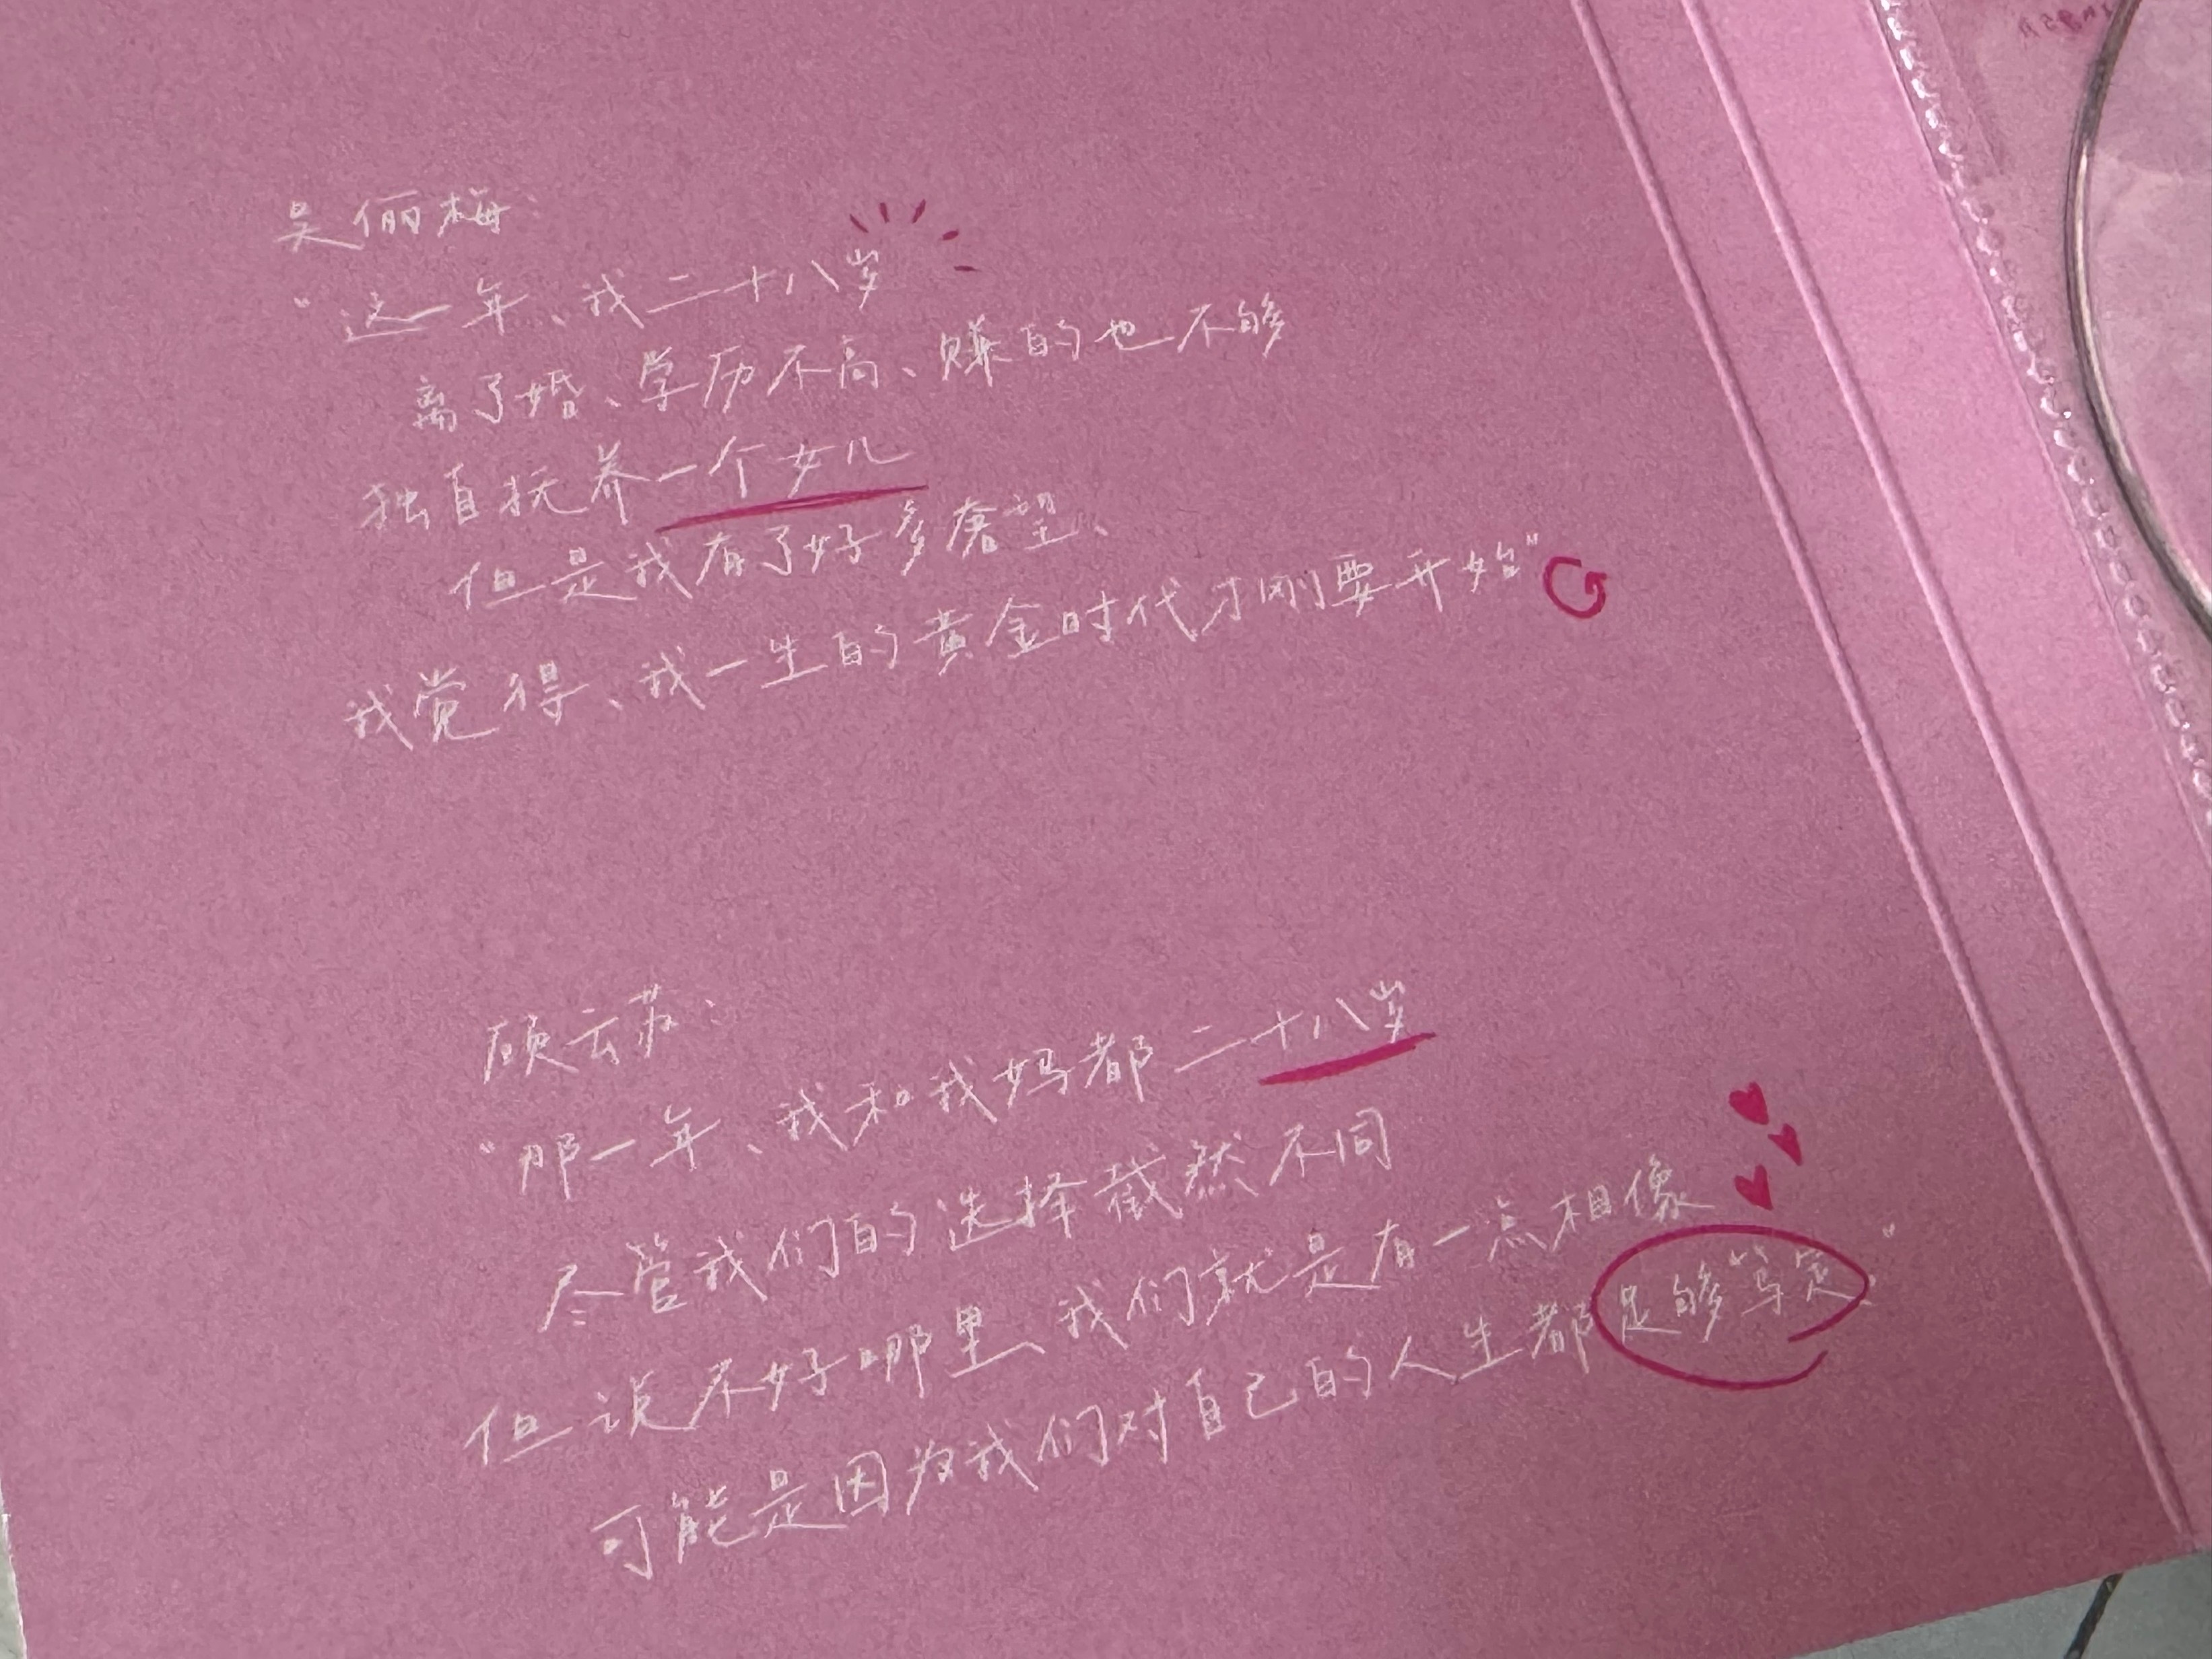 吴俪梅:
“这一年、我二十八岁
离了婚、学历不高、赚的也不够
独自抚养一个女儿
但是我有了好多奢望、
我觉得、我一生的黄金时代才刚要开始”
顾云苏:
“那一年、我和我妈都二十八岁
尽管我们的选择截然不同
但说不好哪里、我们就是有一点相像
可能是因为我们对自己的人生都足够笃定”